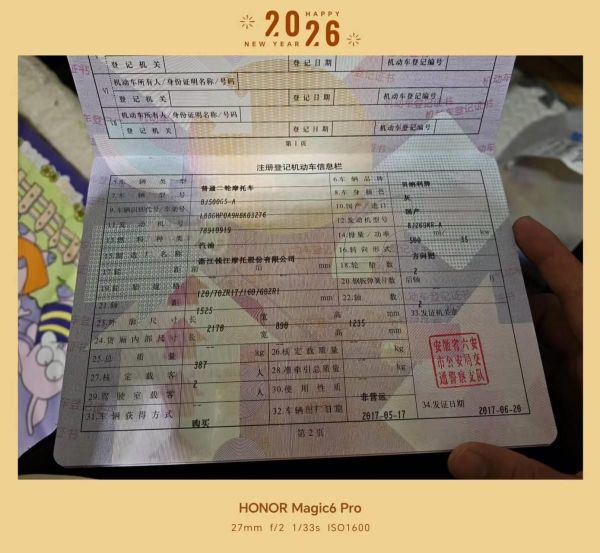 HAPPY
2026
NEW YEAR
登记机关 登记日期 机动车登记编号
机动车所有人/身份证明名称/号码
登记机关 登记日期 机动车登记编号
机动车所有人/身份证明名称/号码
登记机关 登记日期 机动车登记编号
第1页
注册登记机动车信息栏
5.车辆类型 普通二轮摩托车 6.车辆品牌 贝纳利牌
7.车辆型号 BJ500GS-A 8.车身颜色 灰
9.车辆识别代号/车架号 10.国产/进口 国产
11.发动机号 78910919 12.发动机型号
13.燃料种类 汽油 14.排量/功率 500 35 kw
15.制造厂名称 浙江钱江摩托股份有限公司 16.转向形式 方向把
17.轮距 前 后 mm 18.轮胎数 2
19.轮胎规格 120/70ZR17/160/60ZR1 20.钢板弹簧片数 后轴
21.轴距 1525 mm 22.轴数 2
23.外廓尺寸 长 2170 宽 890 高 1235 mm 33.发证机关章
24.货厢内部尺寸 长 宽 高 mm
25.总质量 387 kg 26.核定载质量 kg
27.核定载客 2 人 28.准牵引总质量 kg
29.驾驶室载客 人 30.使用性质 非营运
31.车辆获得方式 购买 32.车辆出厂日期 2017-05-17 34.发证日期 2017-06-20
安徽省六安
市公安局交
通警察支队
第2页
HONOR Magic6 Pro
27mm f/2 1/33s ISO1600